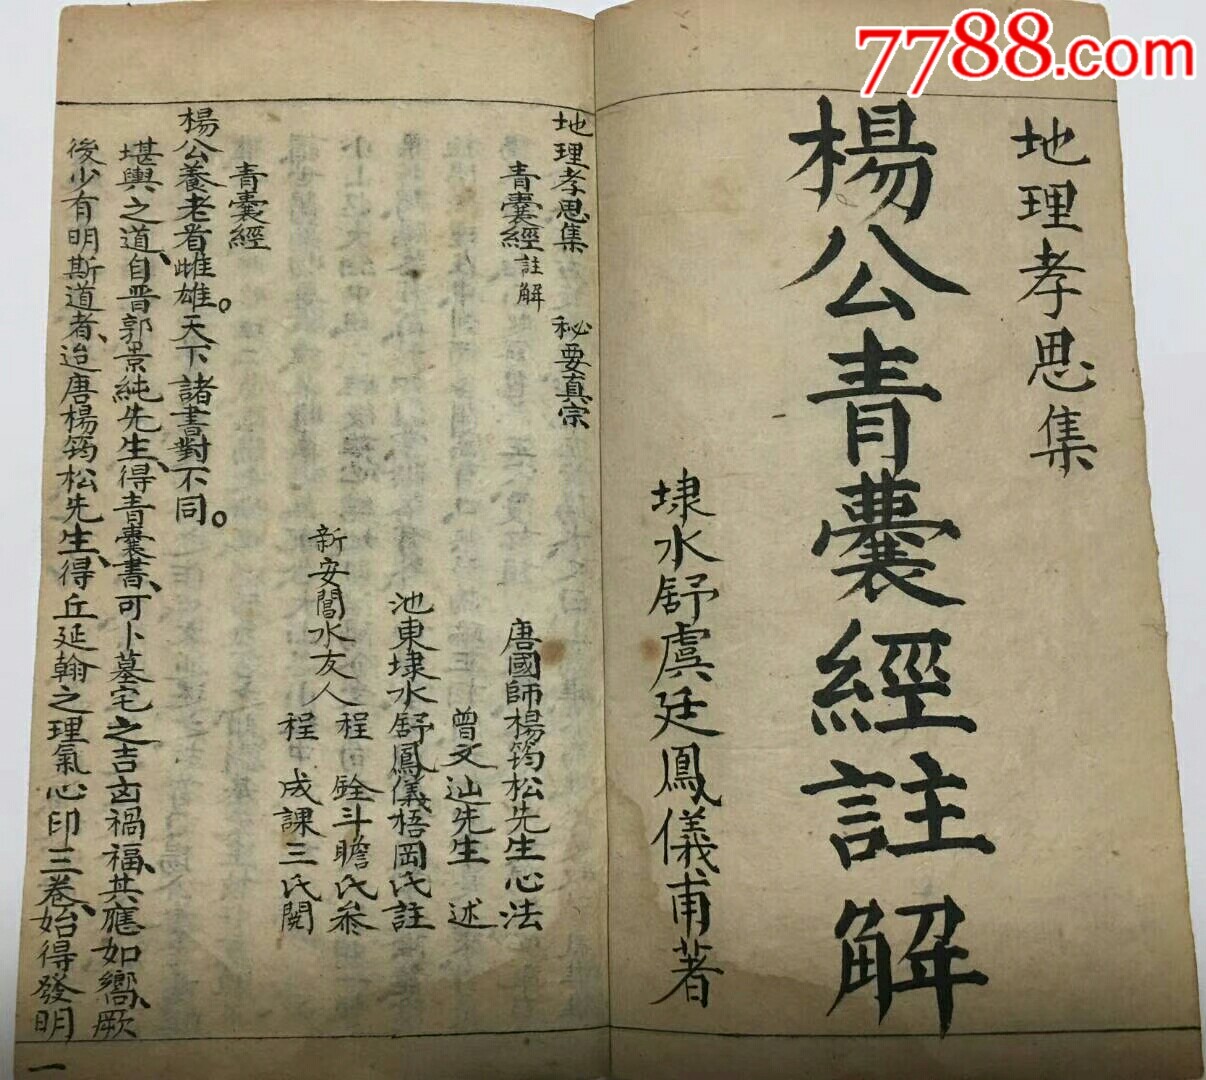 7788.com
地理孝思集
楊公青囊經註解
埭水舒虞廷鳳儀甫著
地理孝思集 秘要真宗
青囊經註解
唐國師楊筠松先生心法
曾文辿先生述
池東埭水舒鳳儀梧岡氏註
新安閶水友人 程銓斗瞻氏叅
程成課三氏閱
青囊經
楊公養老看雌雄。天下諸書對不同。
堪輿之道、自晋郭景純先生、得青囊書、可卜墓宅之吉凶禍福、其應如嚮、厥
後少有明斯道者、迨唐楊筠松先生、得丘延翰之理氣心印三卷、始得發明
一